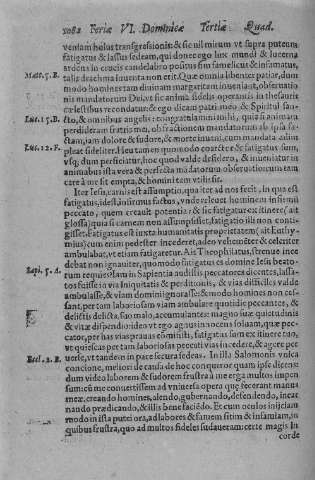 1082 Feriæ VI. Dominicæ Tertiæ Quad.
veniam huius transgressionis: & sic nil mirum vt supra puteum
fatigatus & lassus sedeam, qui donec ego lux mundi & lucerna
ardens in crucis candelabro positus siti famelicus & infamatus,
Matt. 5. B. talis drachma inuenta non erit. Quæ omnia libenter patiar, dum
modo hominem tam diuinam margaritam inueniant, obseruatio
nis mandatorum Dei, vt sic anima fidelis operantis in thesauris
cælestibus recondatur: & ego dicam patri meo & Spiritui San-
Luc. 15. B. cto, & omnibus angelis: congratulamini mihi, quia si animam
perdideram fratris mei, ob fractionem mandatorum ab ipsa fa-
ctam, iam dolore & sudore, & morte inueni, cum mandata adim
Luc. 12. F. pleat fideliter. Heu tamen quomodo coarctor & fatigatus sum,
vsq; dum perficiatur, hoc quod valde desidero, & inueniatur in
animabus ista vera & perfecta mandatorum obseruatio cum eam
care à me sit empta, & homini tam vtilis sit.
Iter Iesu, carnis est assumptio, qua iter ad nos fecit, in qua est
fatigatus, idest, à infirmus factus, vnde releuet hominem infirmũ
peccato, quem creauit potentia: & sic fatigatur ex itinere, (ait
glossa) quia si carnem non assumpsisset, fatigatio illi non conti-
gisset. Fatigatus est iuxta humanitatis proprietatem (ait Euthy-
mius) cum enim pedester incederet, adeo vehemẽter & celeriter
ambulabat, vt etiam fatigaretur. Ait Theophilatus, strenue ince
debat non ignauiter, quomodo fatigatus es domine Iesu beato-
Sapi. 5. A. rum requies? Iam in Sapientia audistis peccatores dicentes, lassa-
tos fuisse in via Iniquitatis & perditionis, & vias difficiles valde
ambulasse, & viam domini ignorasse: & modo homines non ces-
sant, per tam laboriosam viam ambulare quotidie peccantes, &
delicta delictis, suo malo, accumulantes: magno suæ quietudinis
& vitæ dispendio: ideo vt ego agnus innocens soluam, quæ pec-
cator, per has vias prauas commisisti, fatigatus sum ex itinere tuo,
vt quiescas per tam laboriosas peccati vias incedere, & agere per
Eccl. 2. B. uerse, vt tandem in pace secura sedeas. In illa Salomonis vulca
concine, meliori de causa de hoc conqueror quam ipse dicens:
dum video laborem & sudorem frustra à me erga multos impen
sum: cũ me conuertissem ad vniuersa opera quæ fecerant manus
meæ, creando homines, alendo, gubernando, defendendo, incar
nando prædicando, & illis benefaciẽdo. Et cum oculos inijciam
modo in ista puti ora, ad labores & famem sitim & infamiam, in
quibus frustra, quo ad multos fideles sudaueram: certe magis in
corde